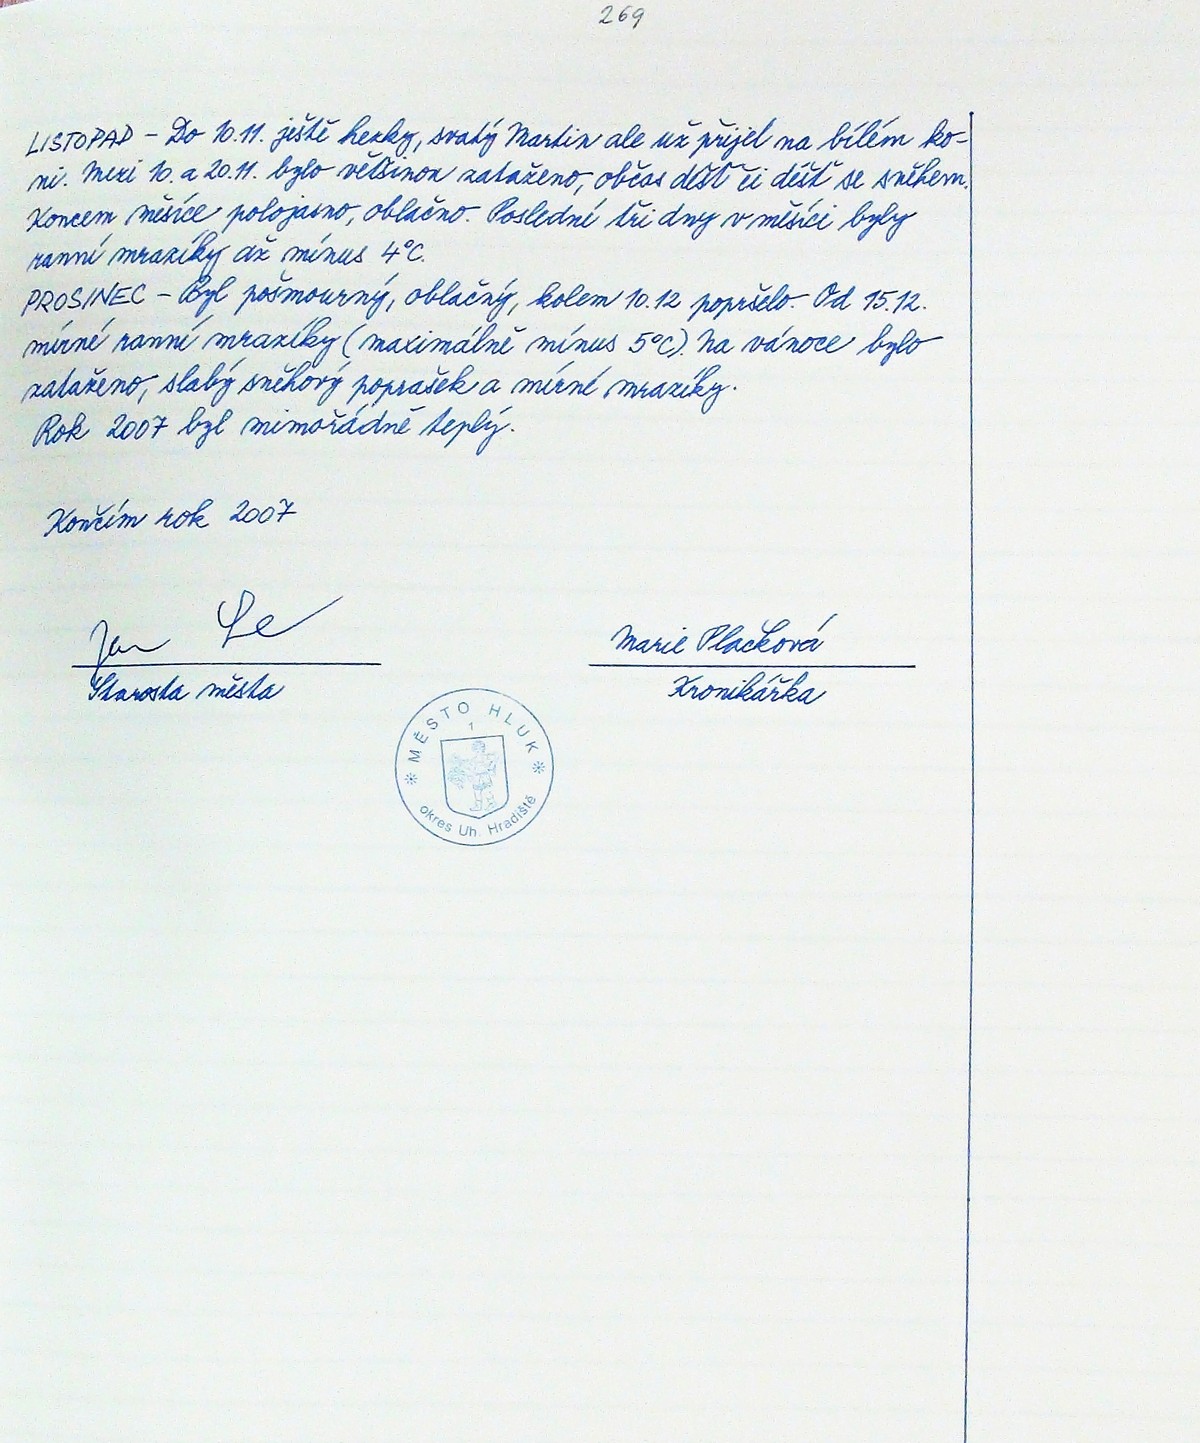 269
LISTOPAD – Do 10.11. ještě hezky, svatý Martin ale už přijel na bílém ko-
ni. Mezi 10. a 20.11. bylo většinou zataženo, občas déšť či déšť se sněhem.
Koncem měsíce polojasno, oblačno. Poslední tři dny v měsíci byly
ranní mrazíky až mínus 4°C.
PROSINEC – Byl pošmourný, oblačný, kolem 10.12 popršelo. Od 15.12.
mírné ranní mrazíky (maximálně mínus 5°C). Na vánoce bylo
zataženo, slabý sněhový poprašek a mírné mrazíky.
Rok 2007 byl mimořádně teplý.
Končím rok 2007
Jan
Marie Plačková
Starosta města
Kronikářka
MĚSTO HLUK
1
okres Uh. Hradiště